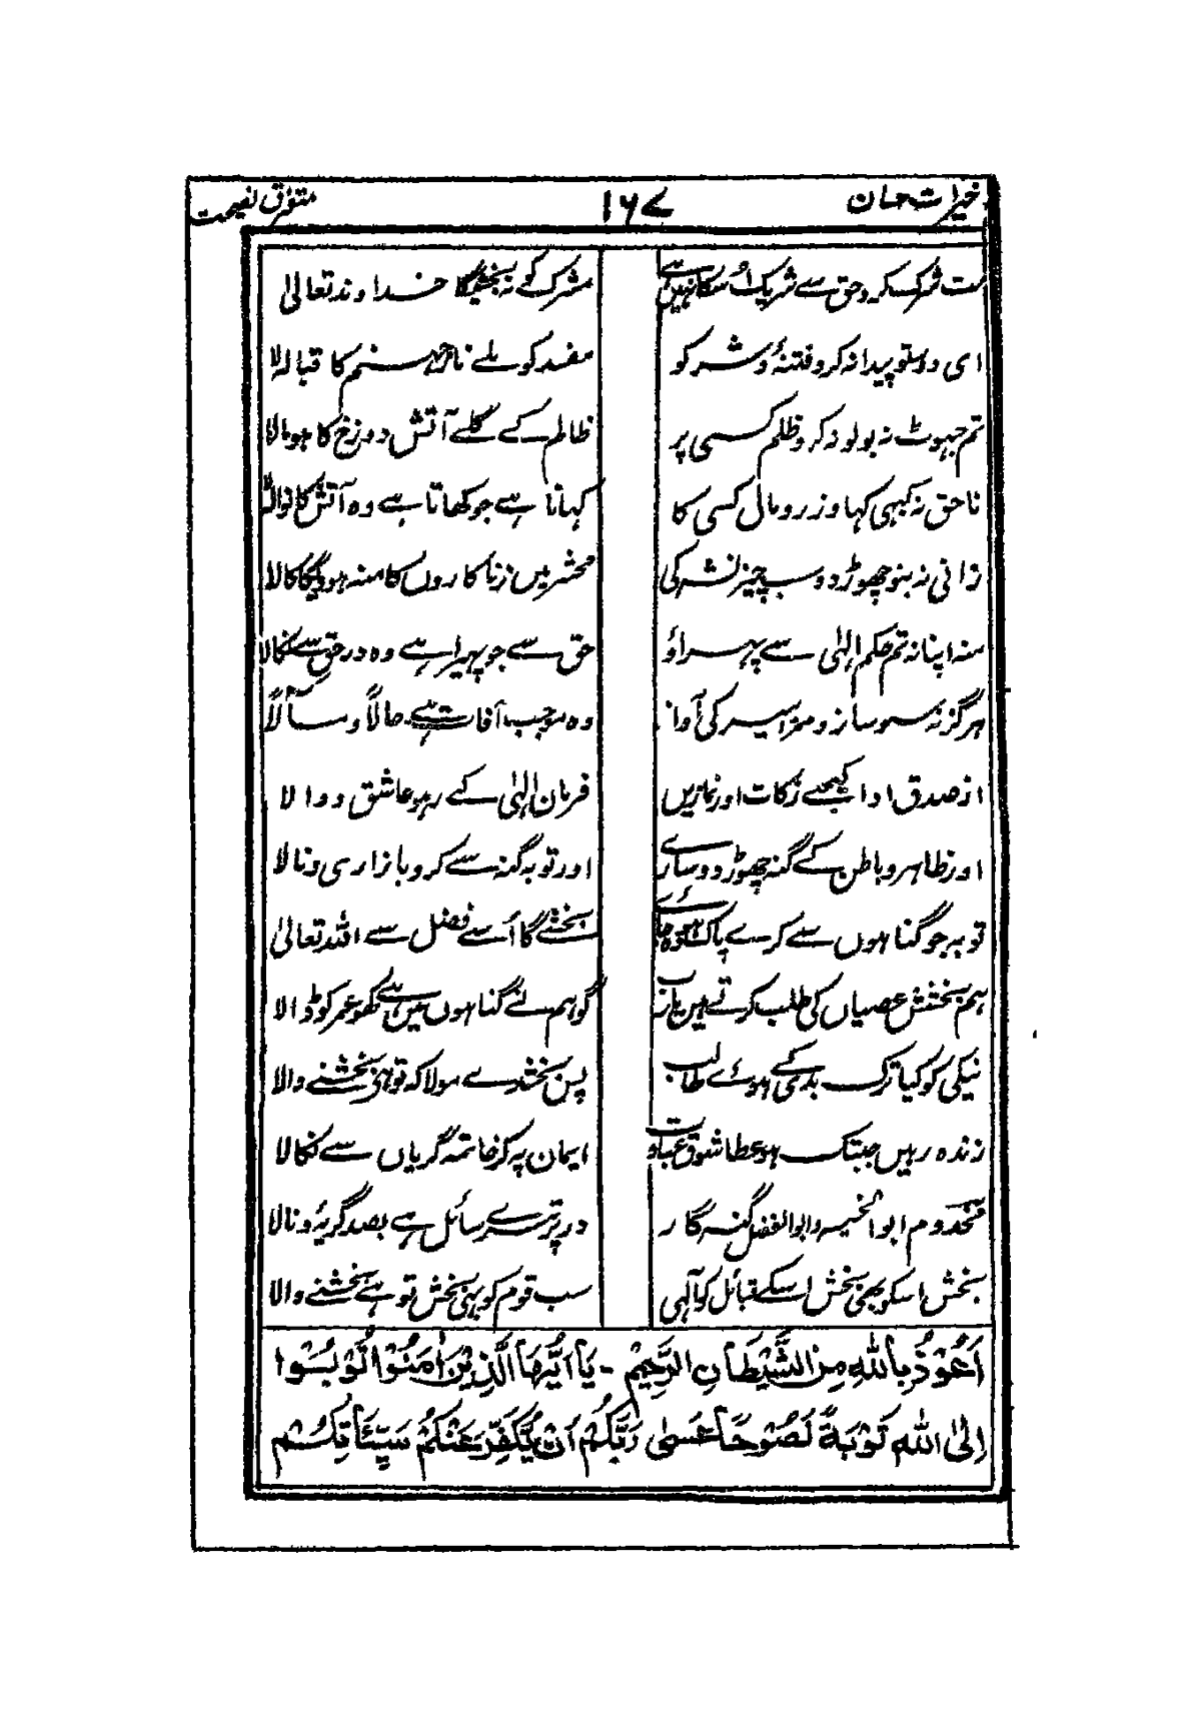 خیرات حسان ۱۶۷ متفرق نصیحت
مت شرک کرو حق سے شریک اُسکا نہیں ہے مشرک کو نہ بخشیگا خداوند تعالیٰ
ای دوستو پیدا نہ کرو فتنۂ و شر کو مفسد کو ملے نار جہنم کا قبالہ
تم جہوٹ نہ بولو نہ کرو ظلم کسی پر ظالم کے گلے آتش دوزخ کا ہو مالا
ناحق نہ کبہی کہاو زر و مال کسی کا کہانا ہے جو کھاتا ہے وہ آتش کا نوالہ
زانی نہ بنو چھوڑ دو سب چیز نشہ کی محشر میں زنا کاروں کا منہ ہوویگا کالا
منہ اپنا نہ تم حکم الہٰی سے پہراؤ حق سے جو پہرا ہے وہ در حق سے نکالا
ہرگز نہ سنو ساز و مزامیر کی آواز وہ موجب آفات ہے حالاً و مآلاً
از صدق ادا کیجے زکات اور نمازیں فرمان الہٰی کے رہو عاشق و والا
اور ظاہر و باطن کے گنہ چھوڑ دو سارے اور توبہ گنہ سے کرو با زاری و نالا
توبہ جو گناہوں سے کرے پاک ہو وہ جائے بخشے گا اُسے فضل سے اللہ تعالیٰ
ہم بخشش عصیاں کی طلب کرتے ہیں یا رب گو ہم نے گناہوں میں ہے کھو عمر کو ڈالا
نیکی کو کیا ترک بدی کے ہوئے طالب پن بخشدے مولا کہ تو ہی بخشنے والا
زندہ رہیں جبتک ہو عطا شوق عبادت ایمان پہ کر خاتمہ گریاں سے نکالا
مخدوم ابوالخیر و ابوالفضل گنہگار در پر ترے سائل ہے بصد گریۂ و نالا
بخش اسکو بھی بخش اسکے قبائل کو آلہی سب قوم کو بہی بخش تو ہے بخشنے والا
اَعُوْذُ بِاللّٰهِ مِنَ الشَّيْطَانِ الرَّجِيْمِ - يَا اَيُّهَا الَّذِيْنَ اٰمَنُوْا تُوْبُوْا
اِلَى اللّٰهِ تَوْبَةً نَصُوْحًا عَسٰى رَبُّكُمْ اَنْ يُّكَفِّرَ عَنْكُمْ سَيِّئَاتِكُمْ